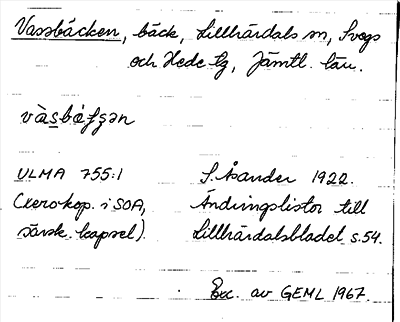 Vassbäcken, bäck, Lillhärdals sn, Svegs
och Hede tg, Jämtl. län.
vàsbǽʃʒən
ULMA 755:1 S. Åsander 1922.
(Xerokop. i SOA, Ändringslistor till
särsk. kapsel). Lillhärdalsbladet s.54.
Exc. av GEML 1967.